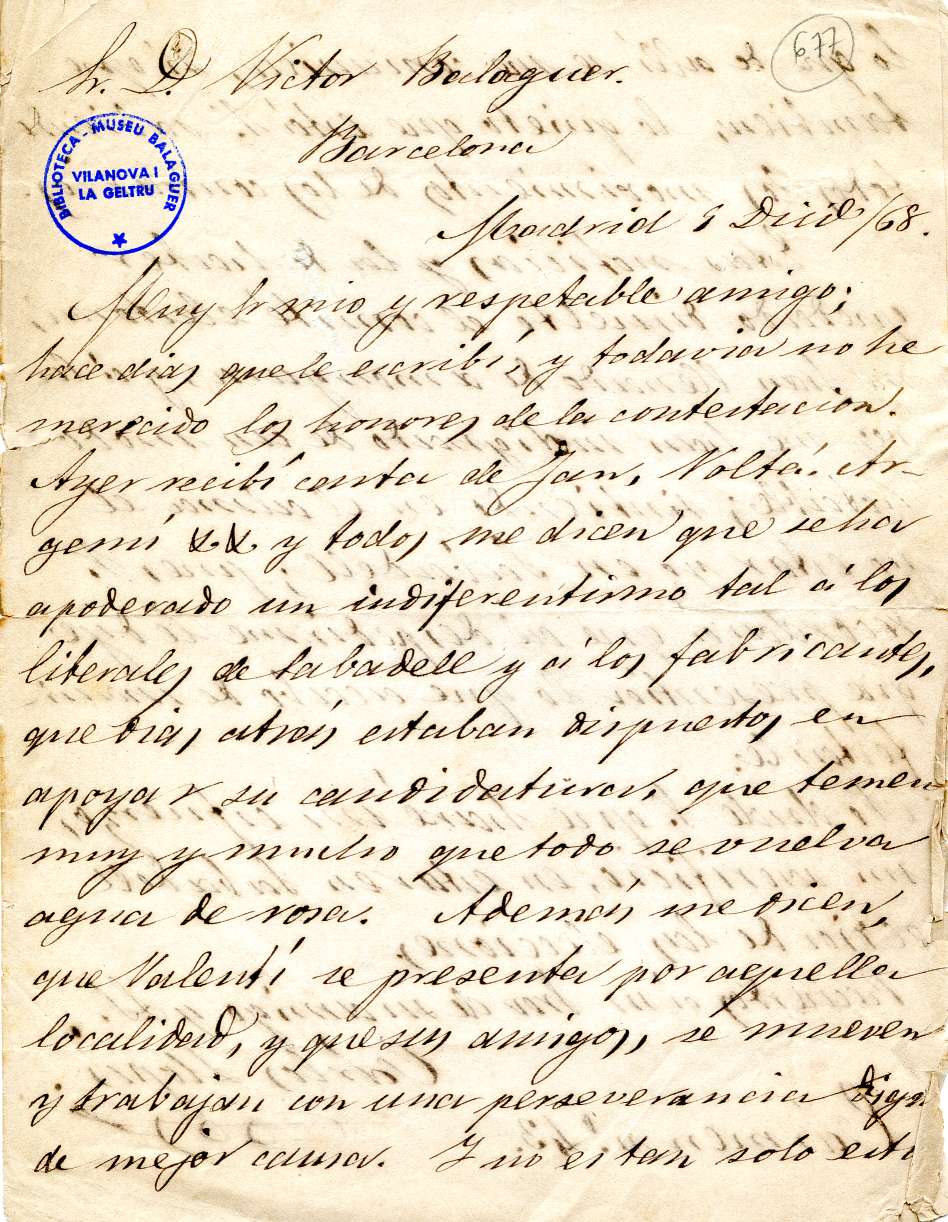 677
Sr. D. Victor Balaguer.
Barcelona
BIBLIOTECA - MUSEU BALAGUER
VILANOVA I
LA GELTRU
Madrid 5 Dicie /68.
Muy Sr mio y respetable amigo;
hace dias que le escribí, y todavia no he
merecido los honores de la contestacion.
Ayer recibí carta de Jan, Voltá. Ar-
gemí && y todos me dicen que se ha
apoderado un indiferentismo tal á los
liberales de Sabadell y á los fabricantes,
que dias atrás estaban dispuestos en
apoyar su candidatura, que temen
muy y mucho que todo se vuelva
agua de rosa. Además me dicen,
que Valentí se presenta por aquella
localidad, y que sus amigos, se mueven
y trabajan con una perseverancia digna
de mejor causa. Y no es tan solo esto